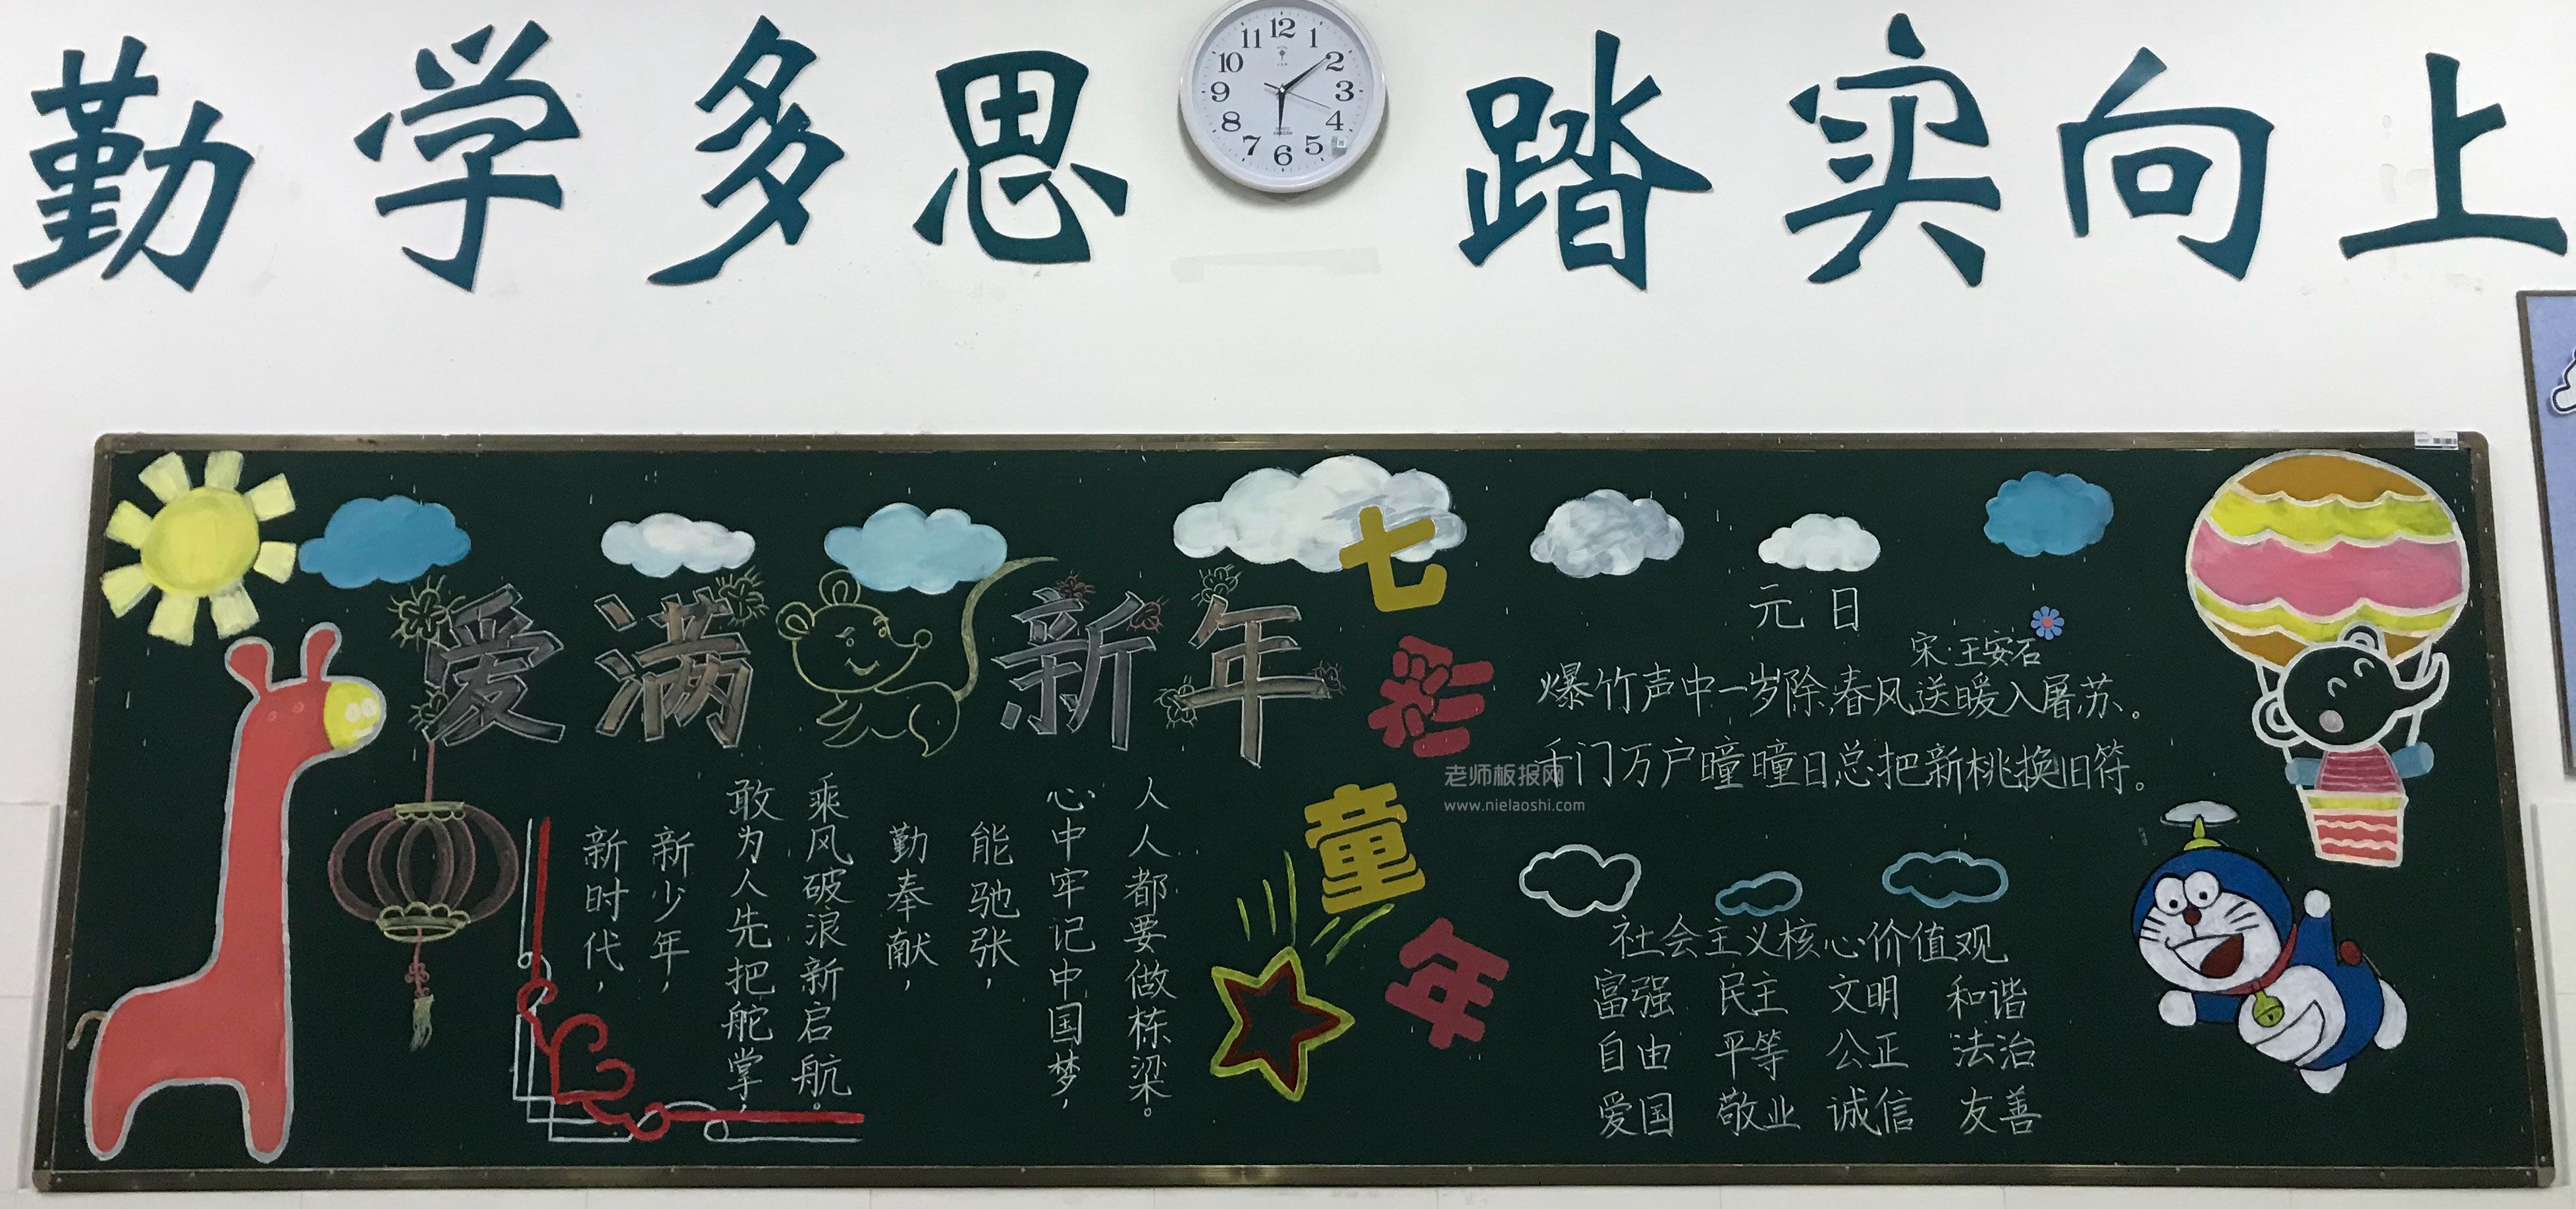 勤学多思 踏实向上
12
1
2
3
4
5
6
7
8
9
10
11
爱满新年
新时代，
新少年，
敢为人先把舵掌，
乘风破浪新启航。
勤奉献，
能驰张，
心中牢记中国梦，
人人都要做栋梁。
七彩童年
元日
宋·王安石
爆竹声中一岁除，春风送暖入屠苏。
千门万户曈曈日，总把新桃换旧符。
老师板报网
www.nielaoshi.com
社会主义核心价值观
富强 民主 文明 和谐
自由 平等 公正 法治
爱国 敬业 诚信 友善